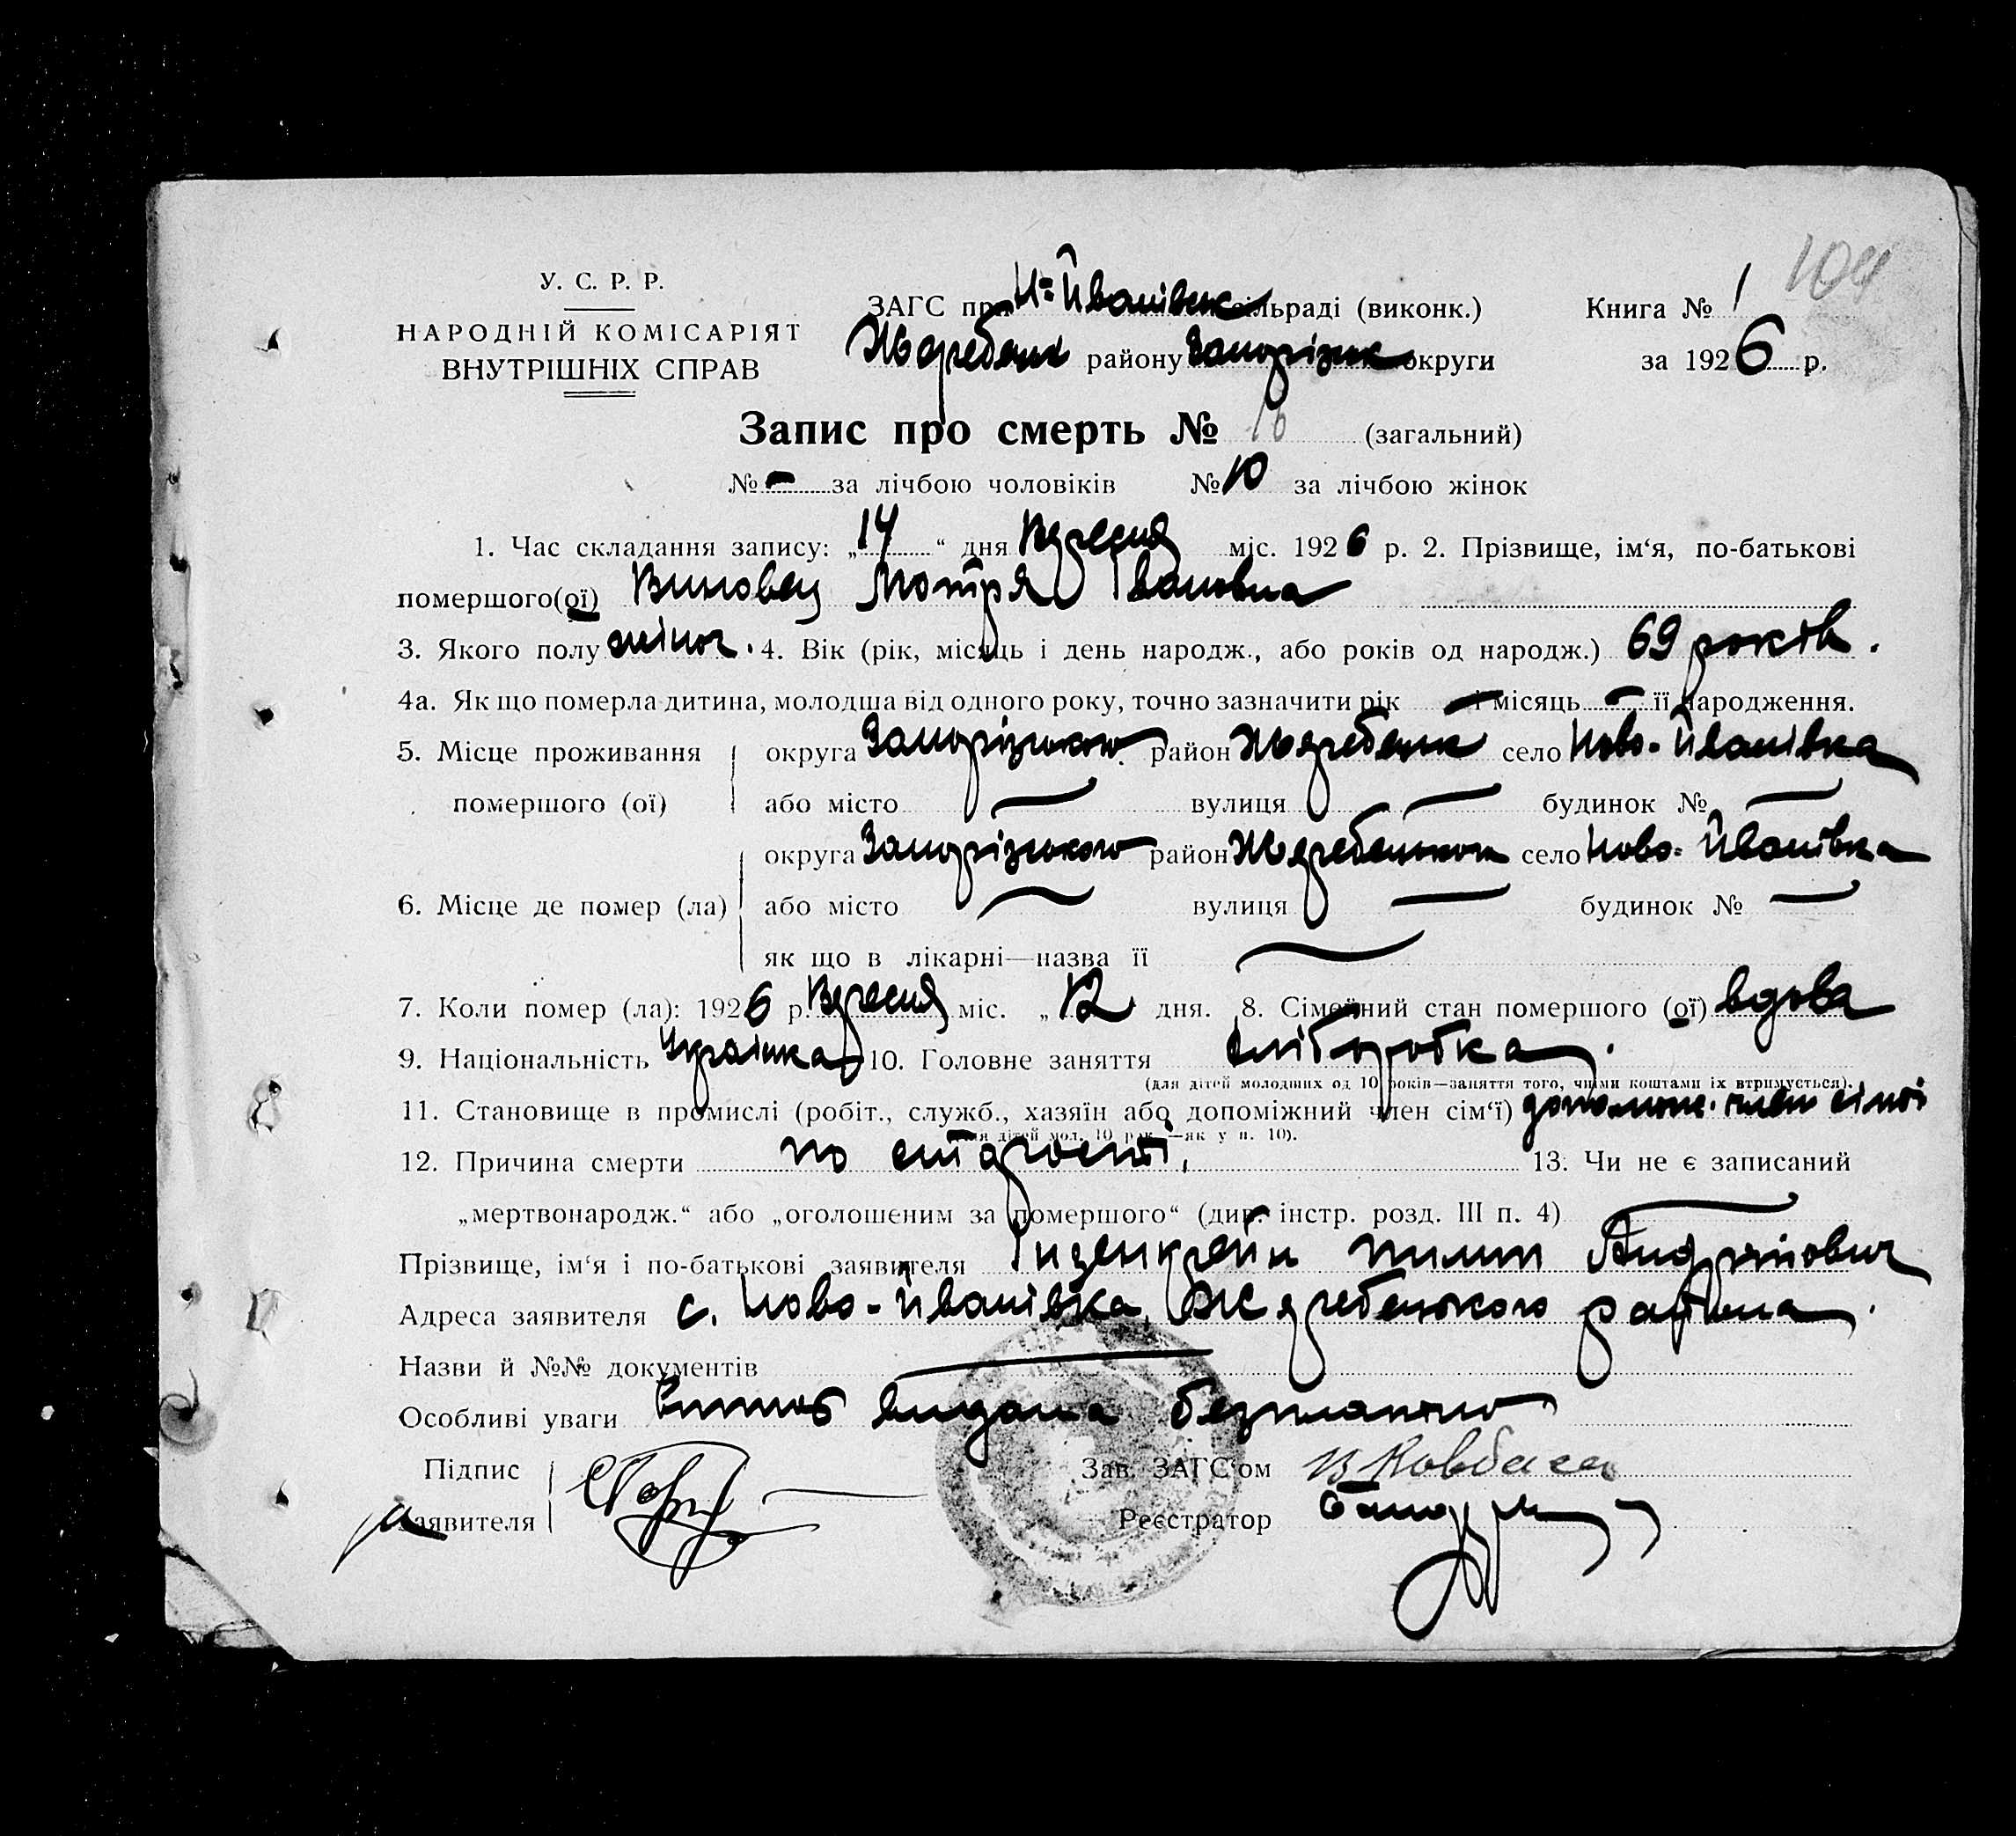 104
У. С. Р. Р.
НАРОДНІЙ КОМІСАРІЯТ
ВНУТРІШНІХ СПРАВ
ЗАГС при Н-Йванівськ сільраді (виконк.)
Жеребецьк району Запорізьк округи
Книга № 1
за 1926 р.
Запис про смерть № 16 (загальний)
№ - за лічбою чоловіків № 10 за лічбою жінок
1. Час складання запису: „14“ дня Вересня міс. 1926 р. 2. Прізвище, ім‘я, по-батькові
помершого(ої) Мотря Івановна
3. Якого полу жіноч. 4. Вік (рік, місяць і день народж., або років од народж.) 69 років.
4а. Як що померла дитина, молодша від одного року, точно зазначити рік — і місяць — її народження.
5. Місце проживання округа Запорізького район Жеребецьк село Ново-Йванівка
помершого (ої) або місто — вулиця — будинок № —
округа Запорізького район Жеребецького село Ново-Йванівка
6. Місце де помер (ла) або місто — вулиця — будинок № —
як що в лікарні—назва її —
7. Коли помер (ла): 1926 р. Вересня міс. „12 дня. 8. Сімейний стан помершого (ої) вдова
9. Національність Українка 10. Головне заняття хліборобка.
(для дітей молодших од 10 років—заняття того, чиїми коштами їх втримується).
11. Становище в промислі (робіт., служб., хазяїн або допоміжний член сім‘ї) допоміж. член сімї
(для дітей мол. 10 рок.—як у п. 10).
12. Причина смерти по старості, 13. Чи не є записаний
„мертвонародж.“ або „оголошеним за помершого“ (див. інстр. розд. III п. 4) —
Прізвище, ім‘я і по-батькові заявителя Пилип
Адреса заявителя с. Ново-Йванівка, Жеребецького района.
Назви й №№ документів —
Особливі уваги видана безплатно
Підпис
заявителя
Зав. ЗАГС‘ом В Ковбаса
Реєстратор